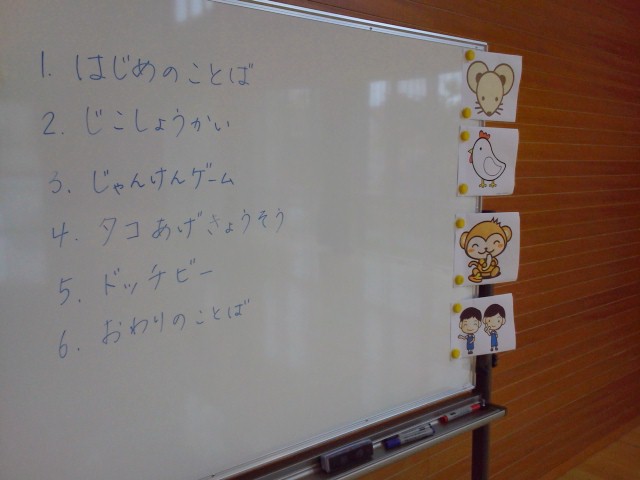 1. はじめのことば
2. じこしょうかい
3. じゃんけんゲーム
4. タコあげきょうそう
5. ドッチビー
6. おわりのことば